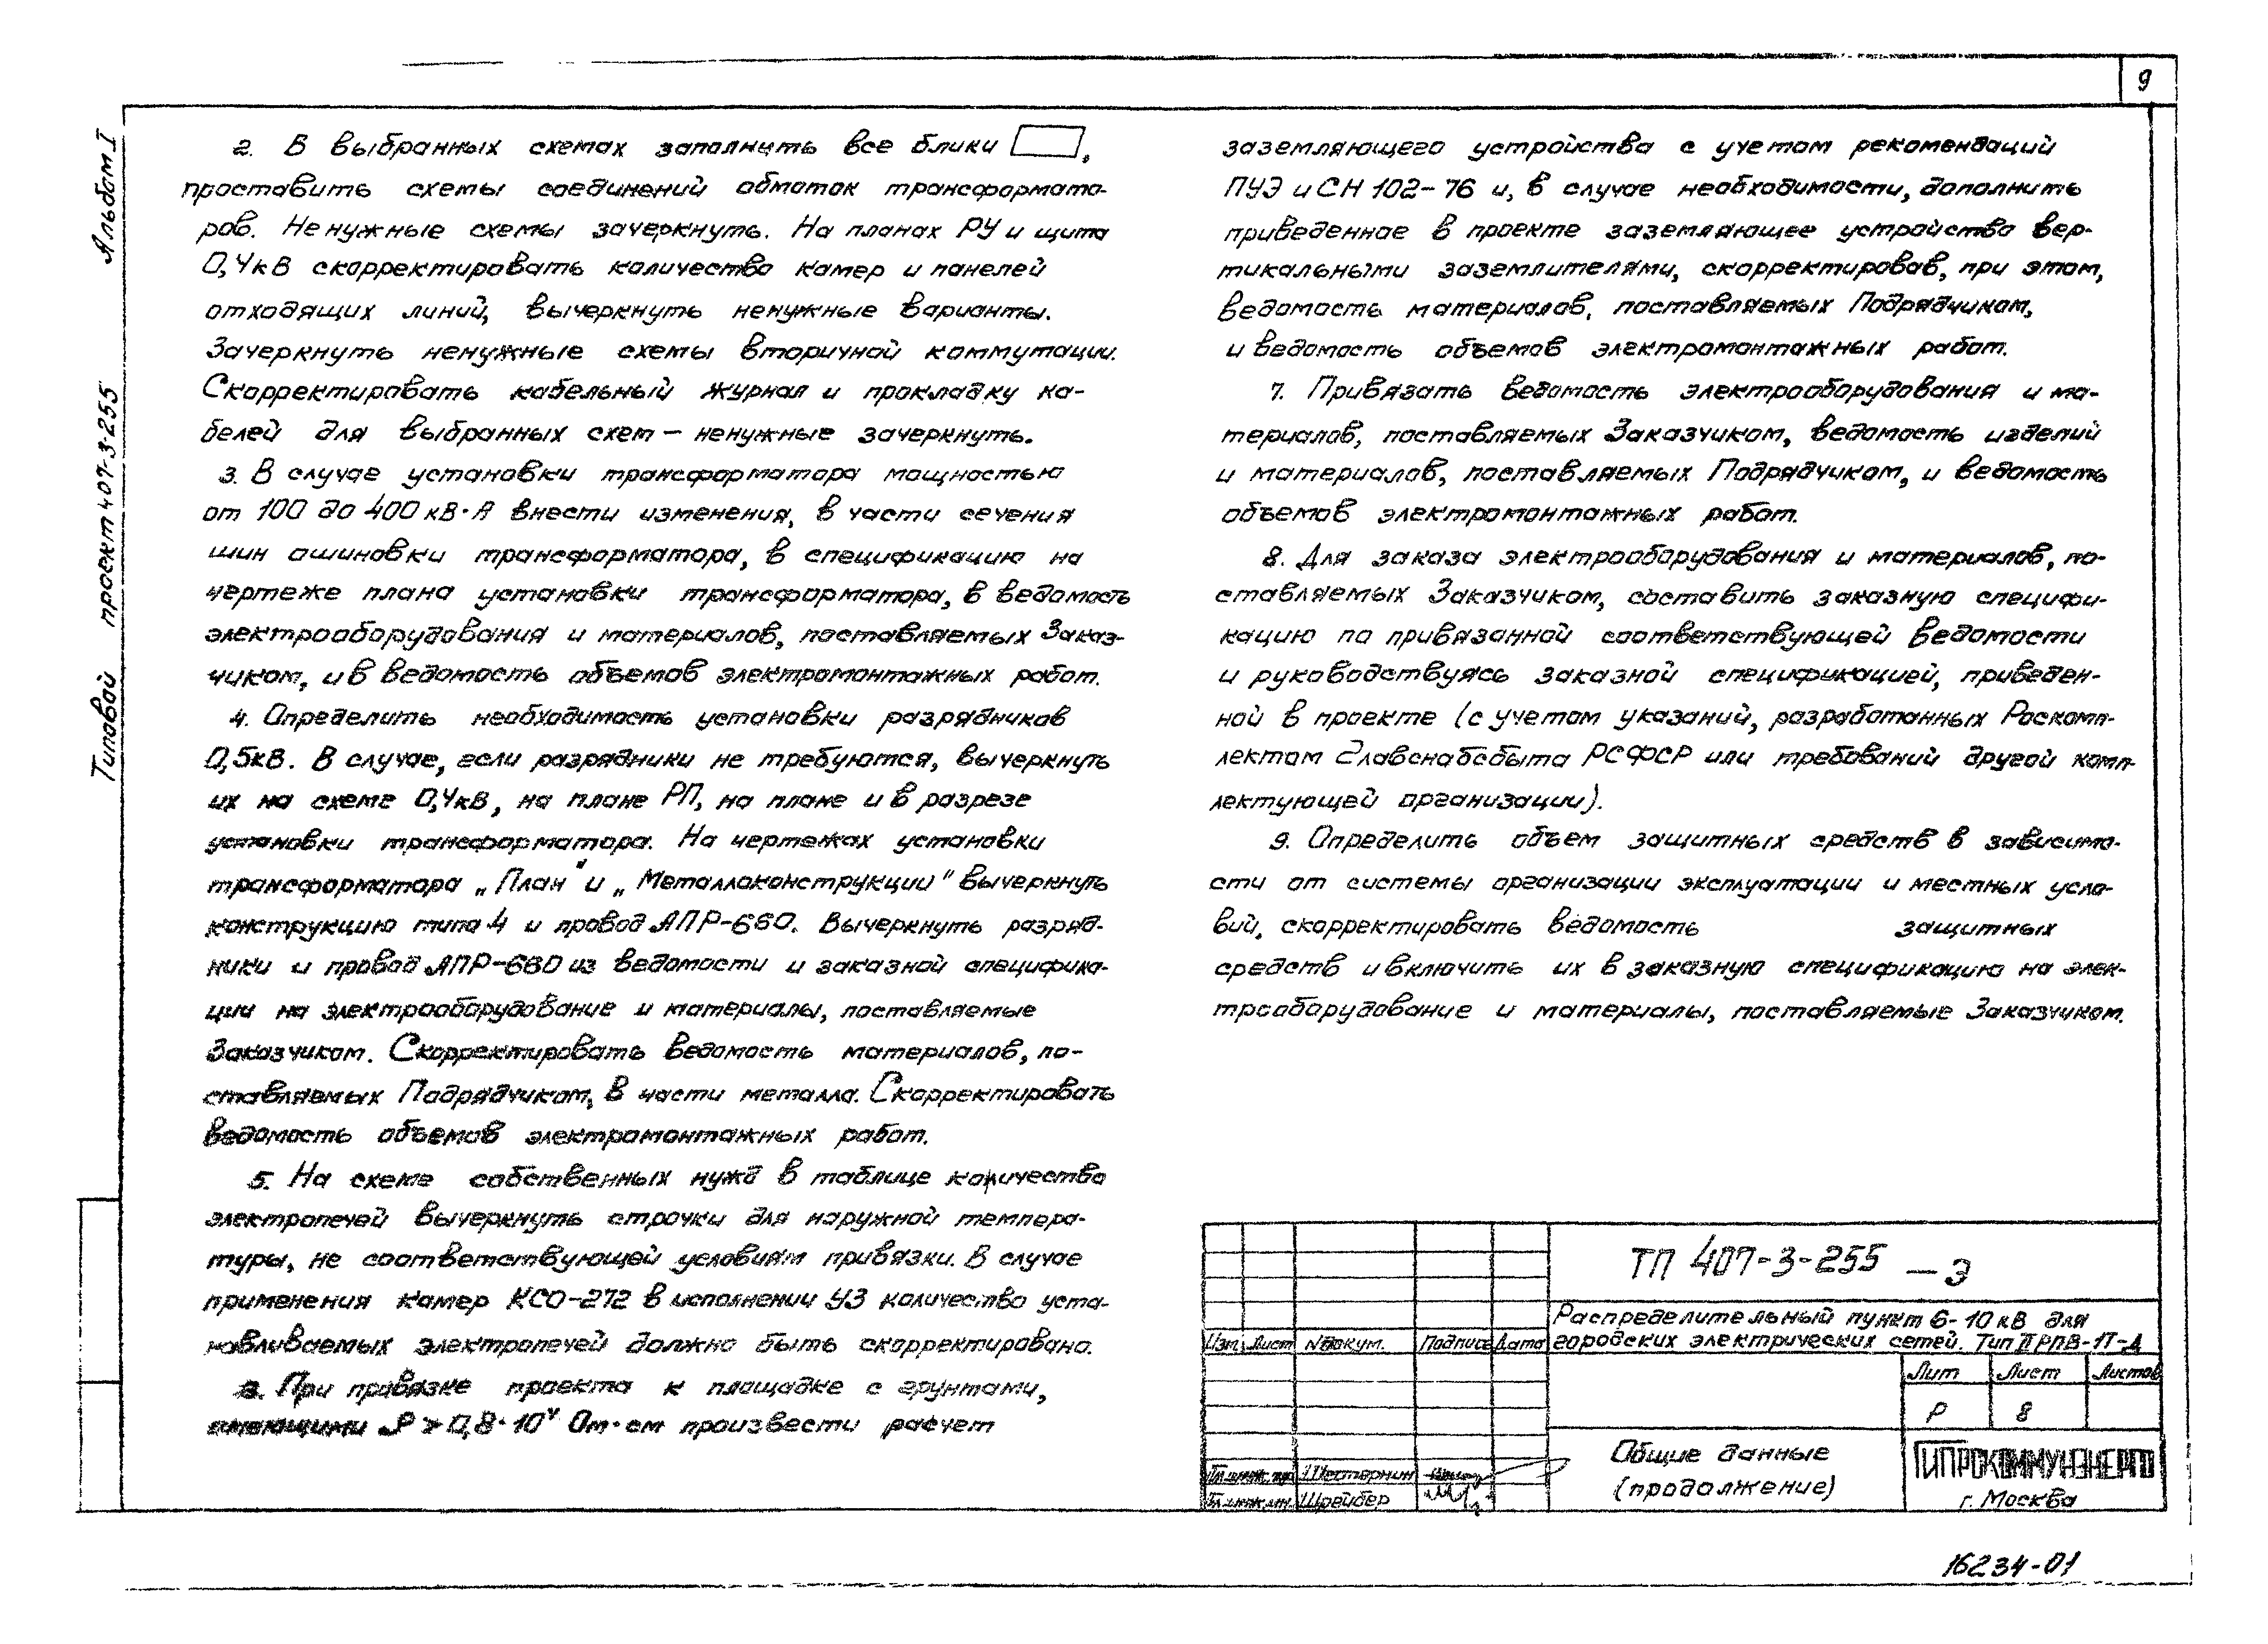 9
Альбом I
Типовой проект 407-3-255
2. В выбранных схемах заполнить все блики ,
проставить схемы соединений обмоток трансформато-
ров. Ненужные схемы зачеркнуть. На планах РУ и щита
0,4кВ скорректировать количество камер и панелей
отходящих линий, вычеркнуть ненужные варианты.
Зачеркнуть ненужные схемы вторичной коммутации.
Скорректировать кабельный журнал и прокладку ка-
белей для выбранных схем — ненужные зачеркнуть.
3. В случае установки трансформатора мощностью
от 100 до 400 кВ·А внести изменения, в части сечения
шин ошиновки трансформатора, в спецификацию на
чертеже плана установки трансформатора, в ведомость
электрооборудования и материалов, поставляемых Заказ-
чиком, и в ведомость объемов электромонтажных работ.
4. Определить необходимость установки разрядников
0,5кВ. В случае, если разрядники не требуются, вычеркнуть
их на схеме 0,4кВ, на плане РП, на плане и в разрезе
установки трансформатора. На чертежах установки
трансформатора „План" и „Металлоконструкции" вычеркнуть
конструкцию типа 4 и провод АПР-660. Вычеркнуть разряд-
ники и провод АПР-660 из ведомости и заказной специфика-
ции на электрооборудование и материалы, поставляемые
Заказчиком. Скорректировать ведомость материалов, по-
ставляемых Подрядчиком, в части металла. Скорректировать
ведомость объемов электромонтажных работ.
5. На схеме собственных нужд в таблице количества
электропечей вычеркнуть строчки для наружной темпера-
туры, не соответствующей условиям привязки. В случае
применения камер КСО-272 в исполнении У3 количество уста-
навливаемых электропечей должно быть скорректировано.
6. При привязке проекта к площадке с грунтами,
имеющими ρ > 0,8·10⁴ Ом·см произвести расчет
заземляющего устройства с учетом рекомендаций
ПУЭ и СН 102-76 и, в случае необходимости, дополнить
приведенное в проекте заземляющее устройство вер-
тикальными заземлителями, скорректировав, при этом,
ведомость материалов, поставляемых Подрядчиком,
и ведомость объемов электромонтажных работ.
7. Привязать ведомость электрооборудования и ма-
териалов, поставляемых Заказчиком, ведомость изделий
и материалов, поставляемых Подрядчиком, и ведомость
объемов электромонтажных работ.
8. Для заказа электрооборудования и материалов, по-
ставляемых Заказчиком, составить заказную специфи-
кацию по привязанной соответствующей ведомости
и руководствуясь заказной спецификацией, приведен-
ной в проекте (с учетом указаний, разработанных Роскомп-
лектом Главснабсбыта РСФСР или требований другой комп-
лектующей организации).
9. Определить объем защитных средств в зависимо-
сти от системы организации эксплуатации и местных усло-
вий, скорректировать ведомость защитных
средств и включить их в заказную спецификацию на элек-
трооборудование и материалы, поставляемые Заказчиком.
ТП 407-3-255 — Э
Распределительный пункт 6-10 кВ для
городских электрических сетей. Тип II РПВ-1Т-А
Изм. Лист № докум. Подпись Дата
Лит Лист Листов
Р 8
Общие данные
(продолжение)
ГИПРОКОММУНЭНЕРГО
г. Москва
Гл. инж. пр. Шестернин
Гл. инж. Шрейбер
16234-01